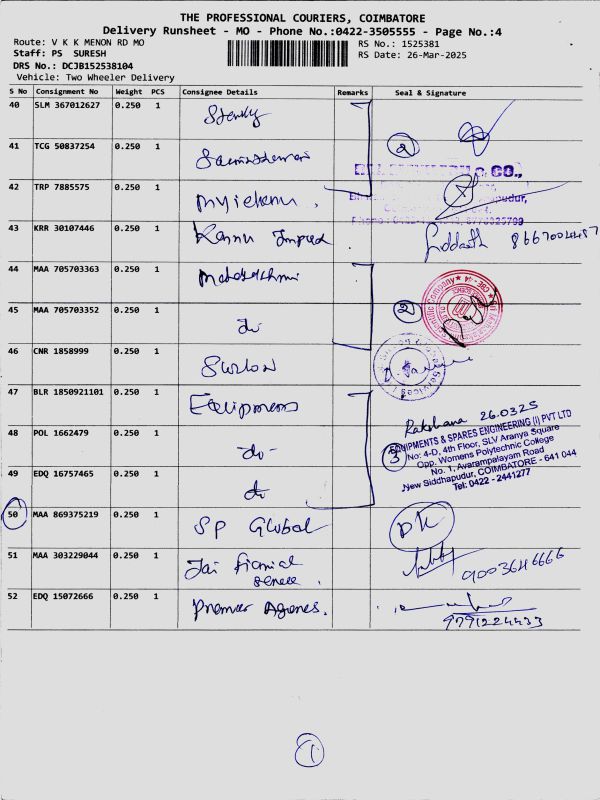 THE PROFESSIONAL COURIERS, COIMBATORE
Delivery Runsheet - MO - Phone No.:0422-3505555 - Page No.:4
Route: V K K MENON RD MO
RS No.: 1525381
Staff: PS SURESH
RS Date: 26-Mar-2025
DRS No.: DCJB152538104
Vehicle: Two Wheeler Delivery
S No Consignment No Weight PCS Consignee Details Remarks Seal & Signature
40 SLM 367012627 0.250 1
41 TCG 50837254 0.250 1
2
& CO.,
42 TRP 7885575 0.250 1
43 KRR 30107446 0.250 1 Kannu
Siddarth 8667004457
44 MAA 705703363 0.250 1
45 MAA 705703352 0.250 1 do
2
46 CNR 1858999 0.250 1
47 BLR 1850921101 0.250 1 Equipmens
Rakshana 26.0325
48 POL 1662479 0.250 1 do-
3
EQUIPMENTS & SPARES ENGINEERING (I) PVT LTD
No: 4-D, 4th Floor, SLV Aranya Square
Opp. Womens Polytechnic College
No. 1, Avarampalayam Road
New Siddhapudur, COIMBATORE - 641 044
Tel: 0422 - 2441277
49 EDQ 16757465 0.250 1 do
50 MAA 869375219 0.250 1 SP Global
51 MAA 303229044 0.250 1 Jai
9003646666
52 EDQ 15072666 0.250 1 Premier Agenes.
9791224433
1